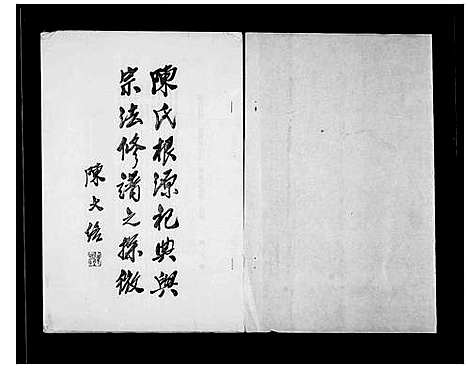 陳氏根源祀典與
宗法修譜之探微
陳大絡